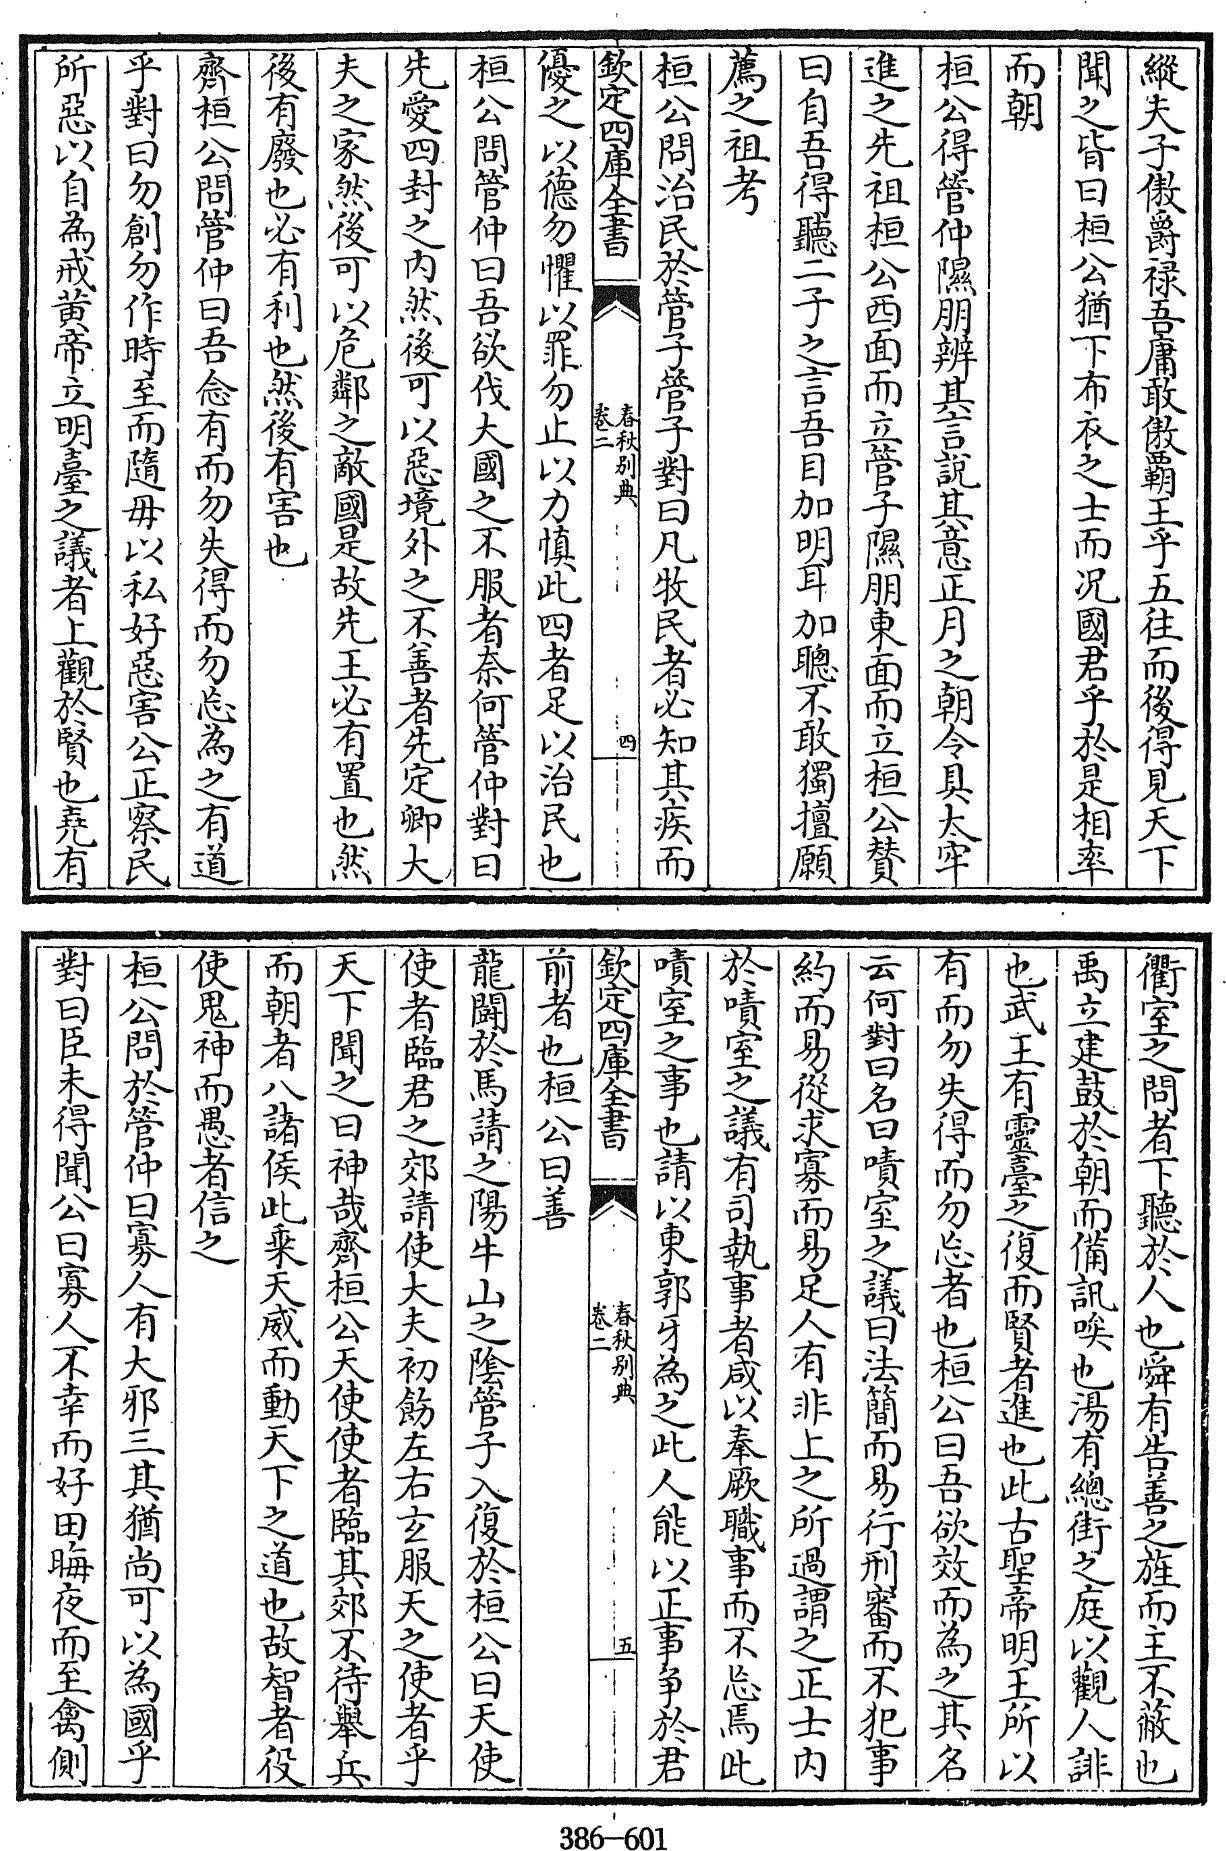 縱夫子傲爵禄吾庸敢傲霸王乎五往而後得見天下
聞之皆曰桓公猶下布衣之士而况國君乎於是相率
而朝
桓公得管仲隰朋辨其言說其意正月之朝令具太牢
進之先祖桓公西面而立管子隰朋東面而立桓公贊
曰自吾得聽二子之言吾目加明耳加聰不敢獨擅願
薦之祖考
桓公問治民於管子管子對曰凡牧民者必知其疾而
欽定四庫全書
春秋别典
卷二
四
優之以德勿懼以罪勿止以力慎此四者足以治民也
桓公問管仲曰吾欲伐大國之不服者奈何管仲對曰
先愛四封之内然後可以惡境外之不善者先定卿大
夫之家然後可以危鄰之敵國是故先王必有置也然
後有廢也必有利也然後有害也
齊桓公問管仲曰吾念有而勿失得而勿忘為之有道
乎對曰勿創勿作時至而隨毋以私好惡害公正察民
所惡以自為戒黄帝立明臺之議者上觀於賢也堯有
衢室之問者下聽於人也舜有告善之旌而主不蔽也
禹立建鼓於朝而備訊唉也湯有總街之庭以觀人誹
也武王有靈臺之復而賢者進也此古聖帝明王所以
有而勿失得而勿忘者也桓公曰吾欲效而為之其名
云何對曰名曰嘖室之議曰法簡而易行刑審而不犯事
約而易從求寡而易足人有非上之所過謂之正士内
於嘖室之議有司執事者咸以奉厥職事而不忘焉此
嘖室之事也請以東郭牙為之此人能以正事争於君
欽定四庫全書
春秋别典
卷二
五
前者也桓公曰善
龍鬭於馬請之陽牛山之陰管子入復於桓公曰天使
使者臨君之郊請使大夫初飭左右玄服天之使者乎
天下聞之曰神哉齊桓公天使使者臨其郊不待舉兵
而朝者八諸侯此乘天威而動天下之道也故智者役
使鬼神而愚者信之
桓公問於管仲曰寡人有大邪三其猶尚可以為國乎
對曰臣未得聞公曰寡人不幸而好田晦夜而至禽側
386—601